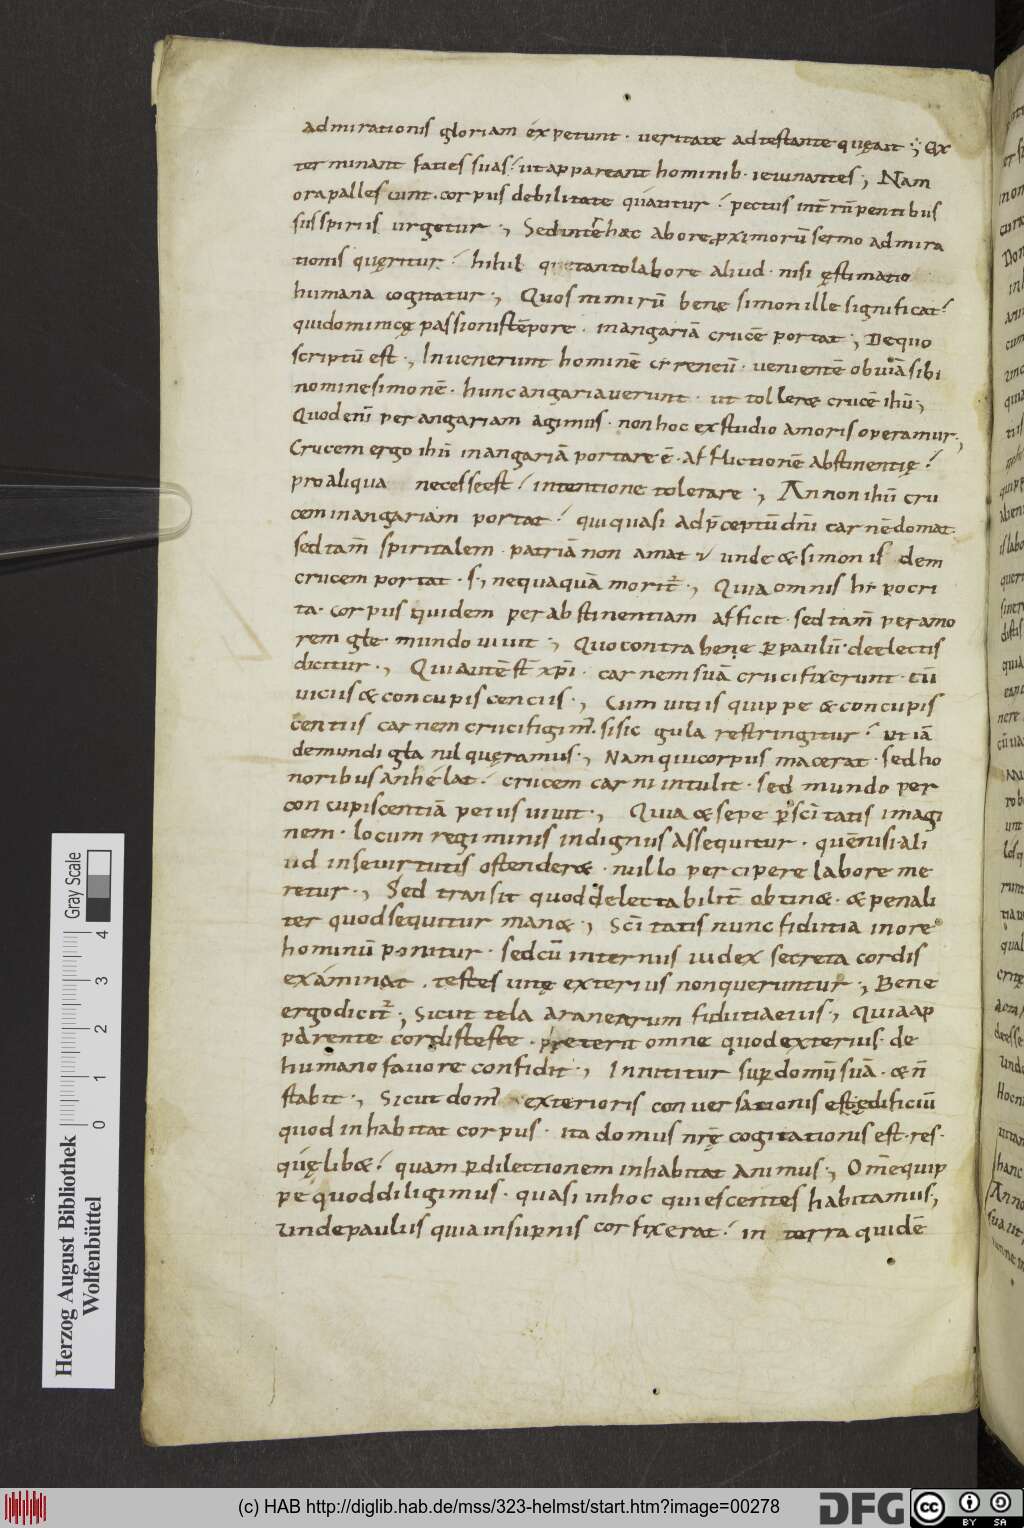 admirationis gloriam expetunt · veritate adtestante quęait ·; Ex
terminant facies suas? ut appareant hominib· ieiunantes; Nam
ora pallescunt · corpus debilitate quatitur? pectus int̄rūpentibus
suspiriis urgetur ·, Sed inter hæc abore proximorū sermo admira
tionis quęritur? hihil quetantolabore aliud · nisi ęstimatio
humana cogitatur ·, Quos nimirū bene simon ille significat?
quidominicę passionis tēpore · inangariā crucē portat ·, Dequo
scriptū est ·, Invenerunt hominē cirreneū · venientē obuiā sibi
nomine simonē · hunc angariaverunt · ut tolleræ crucē ihū ·,
Quod enī per angariam agimus · non hoc ex studio amoris operamur ·,
Crucem ergo ihū inangariā portare ē · afflictionē abstinentię?
pro aliqua necesse est? intentione tolerare ·, An non ihū cru
cem inangariam portat? qui quasi adp̄ceptū dn̄i carnē domat
sed tam̄ spiritalem patriā non amat unde & simon is dem
crucem portat · s; nequaquā morit̄ ·, Quia omnis hipocri
ta · corpus quidem per abstinentiam afficit · sed tam̄ per amo
rem głę mundo vivit ·, Quo contra bene p paulū · deelectis
dicitur ·, Qui autē st̄ xp̄i · carnem suā crucifixerunt · cū
viciis & concupiscenciis ·, Cum vitiis quippe & concupis
centiis carnem crucifigim̄ · si sic gula restringitur? ut iā
demundi gła nil quęramus ·, Nam qui corpus macerat · sed ho
noribus anhelat? crucem carni intulit · sed mundo per
concupiscentiā peius vivit ·, Quia & sepe p sc̄itatis imagi
nem · locum regiminis indignus assequitur · quē nisi ali
ud in se virtutis ostenderæ · nullo percipere labore me
retur ·, Sed transit quod delectabilit̄ obtinæ · & penali
ter quod sequitur manæ ·, Sc̄itatis nunc fidutia in ore
hominū ponitur · sed cū internus iudex secreta cordis
examinat · testes vitę exterius non queruntur ·, Bene
ergo dicit̄ ·, Sicut tela aranearum fidutia eius ·, Quia ap
parente cordis teste · p̄reterit omne quod exterius de
humano favore confidit ·, Innititur sup domū suā · & n̄
stabit ·, Sicut dom̄ exterioris conversationis est ędificiū
quod inhabitat corpus · ita domus nr̄ę cogitationis est · res ·
quęlibæ? quam p dilectionem inhabitat animus ·, Om̄e quip
pe quod diligimus · quasi in hoc quiescentes habitamus ·,
Unde paulus quia in supnis cor fixerat? in terra quidē
Gray Scale
4
3
2
1
0
Herzog August Bibliothek
Wolfenbüttel
(c) HAB http://diglib.hab.de/mss/323-helmst/start.htm?image=00278
DFG
cc
BY SA